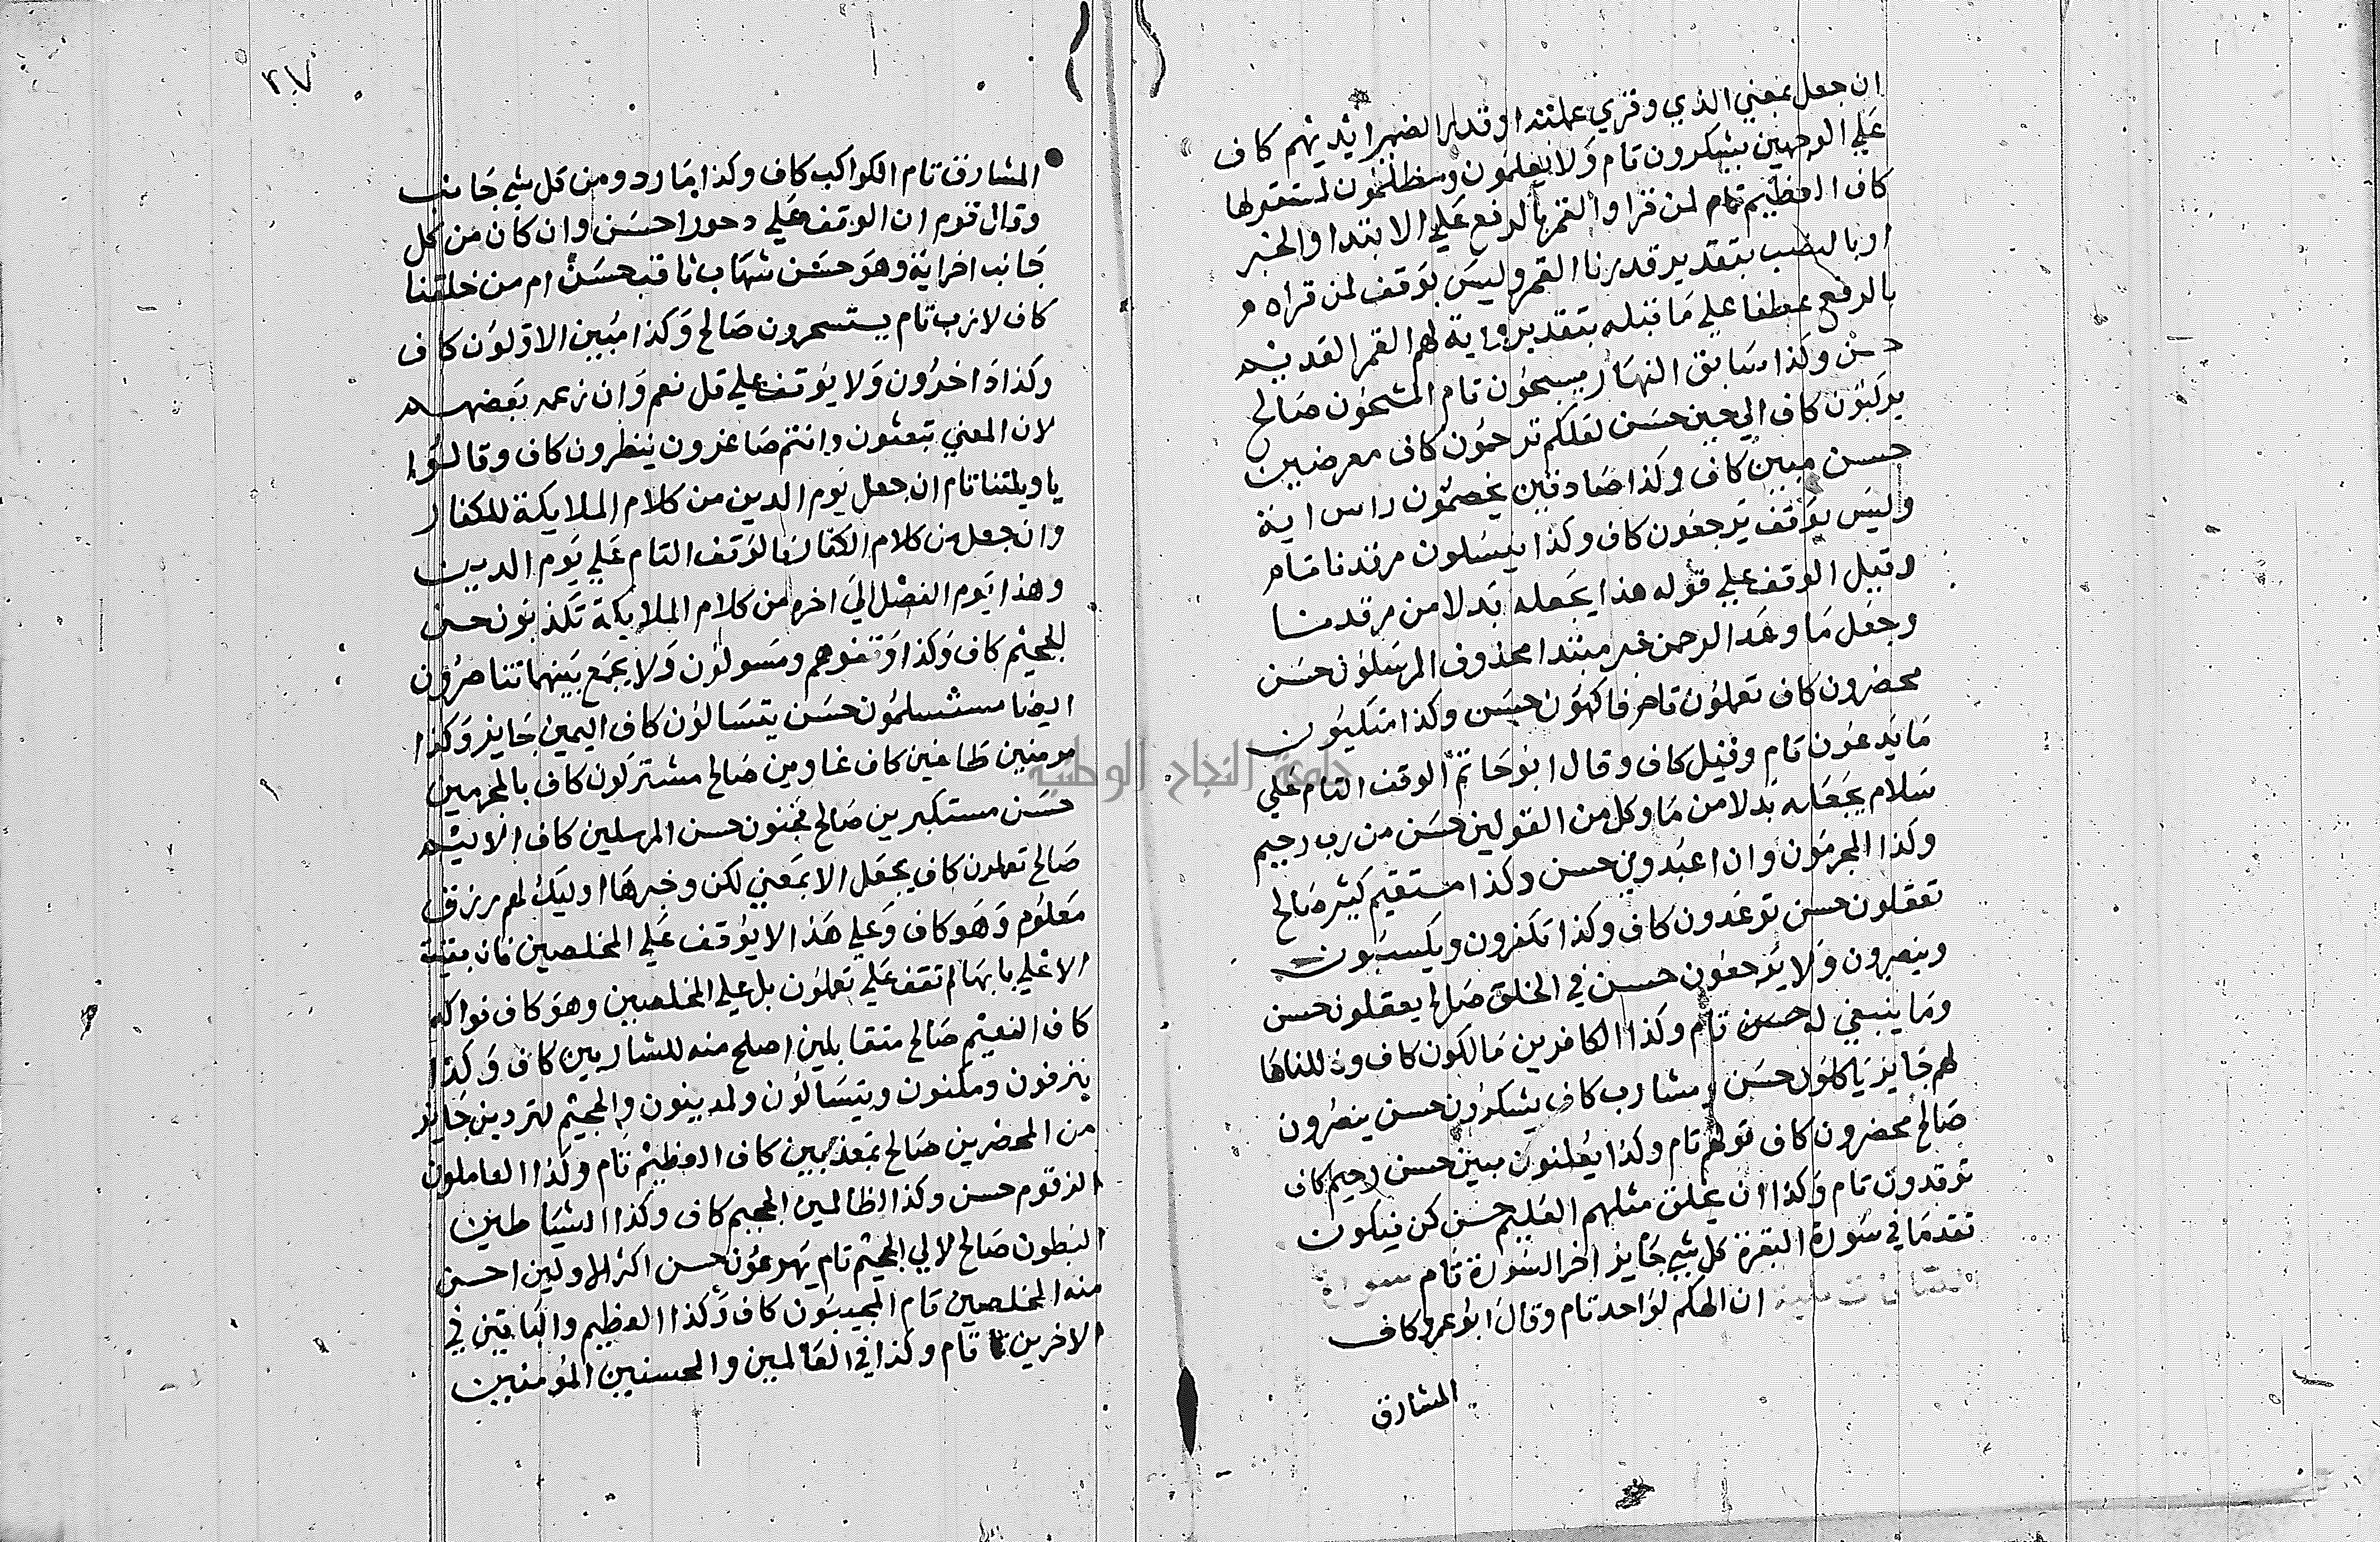 ان جعل بمعني الذي وقري عملته او قدر الضمير ايديهم كاف
علي الوجهين يشكرون تام ولا يعلمون ومظلمون لمستقرلها
كاف العظيم تام لمن قرا والقمر بالرفع علي الابتدا والخبر
او بالنصب بتقدير قدرنا القمر وليس بوقف لمن قراه
بالرفع عطفا علي ما قبله بتقدير واية لهم القمر القديم
حسن وكذا سابق النهار يسبحون تام المشحون صالح
يركبون كاف الي حين حسن لعلكم ترحمون كاف معرضين
حسن مبين كاف وكذا صادقين يخصمون راس اية
وليس بوقف يرجعون كاف وكذا ينسلون مرقدنا تام
وقيل الوقف علي قوله هذا يجعله بدلا من مرقدنا
وجعل ما وعد الرحمن خبر مبتدا محذوف المرسلون حسن
محضرون كاف تعملون تام فاكهون حسن وكذا متكيون
ما يدعون تام وقيل كاف وقال ابو حاتم الوقف التام علي
سلام يجعله بدلا من ما وكل من القولين حسن من رب رحيم
وكذا المجرمون وان اعبدوني حسن وكذا مستقيم كثير صالح
تعقلون حسن توعدون كاف وكذا تكفرون ويكسبون
وينصرون ولا يرجعون حسن في الخلق صالح يعقلون حسن
وما ينبغي له حسن تام وكذا الكافرين مالكون كاف وذللناها
لهم جايز ياكلون حسن ومشارب كاف يشكرون حسن ينصرون
صالح محضرون كاف قولهم تام وكذا يعلنون مبين حسن رحيم كاف
توقدون تام وكذا ان يخلق مثلهم العليم حسن كن فيكون
تقدما في سورة البقرة كل شي جايز اخر السورة تام سورة
ان الهكم لواحد تام وقال ابو عمرو كاف
المشارق
٢٠٧
المشارق تام الكواكب كاف وكذا مارد ومن كل شي جانب
وقال قوم ان الوقف علي دحورا حسن وان كان من كل
جانب اخر اية وهو حسن شهاب ثاقب حسن ام من خلقنا
كاف لازب تام يستسخرون صالح وكذا مبين الاولون كاف
وكذا داخرون ولا يوقف علي قل نعم وان زعمه بعضهم
لان المعني تبعثون وانتم صاغرون ينظرون كاف وقالوا
يا ويلتنا تام ان جعل يوم الدين من كلام الملايكة للكفار
وان جعل من كلام الكفار فالوقف التام علي يوم الدين
وهذا يوم الفصل الي اخره من كلام الملايكة تكذبون حسن
الجحيم كاف وكذا وقفوهم ومسولون ولا يجمع بينهما تناصرون
ايضا مستسلمون حسن يتسالون كاف اليمين جايز وكذا
مومنين طاغين كاف غاوين صالح مشتركون كاف بالمجرمين
حسن مستكبرين صالح مجنون حسن المرسلين كاف الاليم
صالح تعملون كاف بجعل الا بمعني لكن وخبرها اوليك لهم رزق
معلوم وهو كاف وعلي هذا لا يوقف علي المخلصين فان بقيت
الا علي بابها لم تقف علي تعملون بل علي المخلصين وهو كاف فواكه
كاف النعيم صالح متقابلين اصلح منه للشاربين كاف وكذا
ينزفون ومكنون ويتسالون ولمدينون والجحيم لتردين جايز
من المحضرين صالح بمعذبين كاف العظيم تام وكذا العاملون
الزقوم حسن وكذا للظالمين الجحيم كاف وكذا الشياطين
البطون صالح لالي الجحيم تام يهرعون حسن اكثر الاولين احسن
منه المخلصين تام المجيبون كاف وكذا العظيم والباقين في
الاخرين تام وكذا في العالمين والمحسنين المؤمنين
جامعة النجاح الوطنية